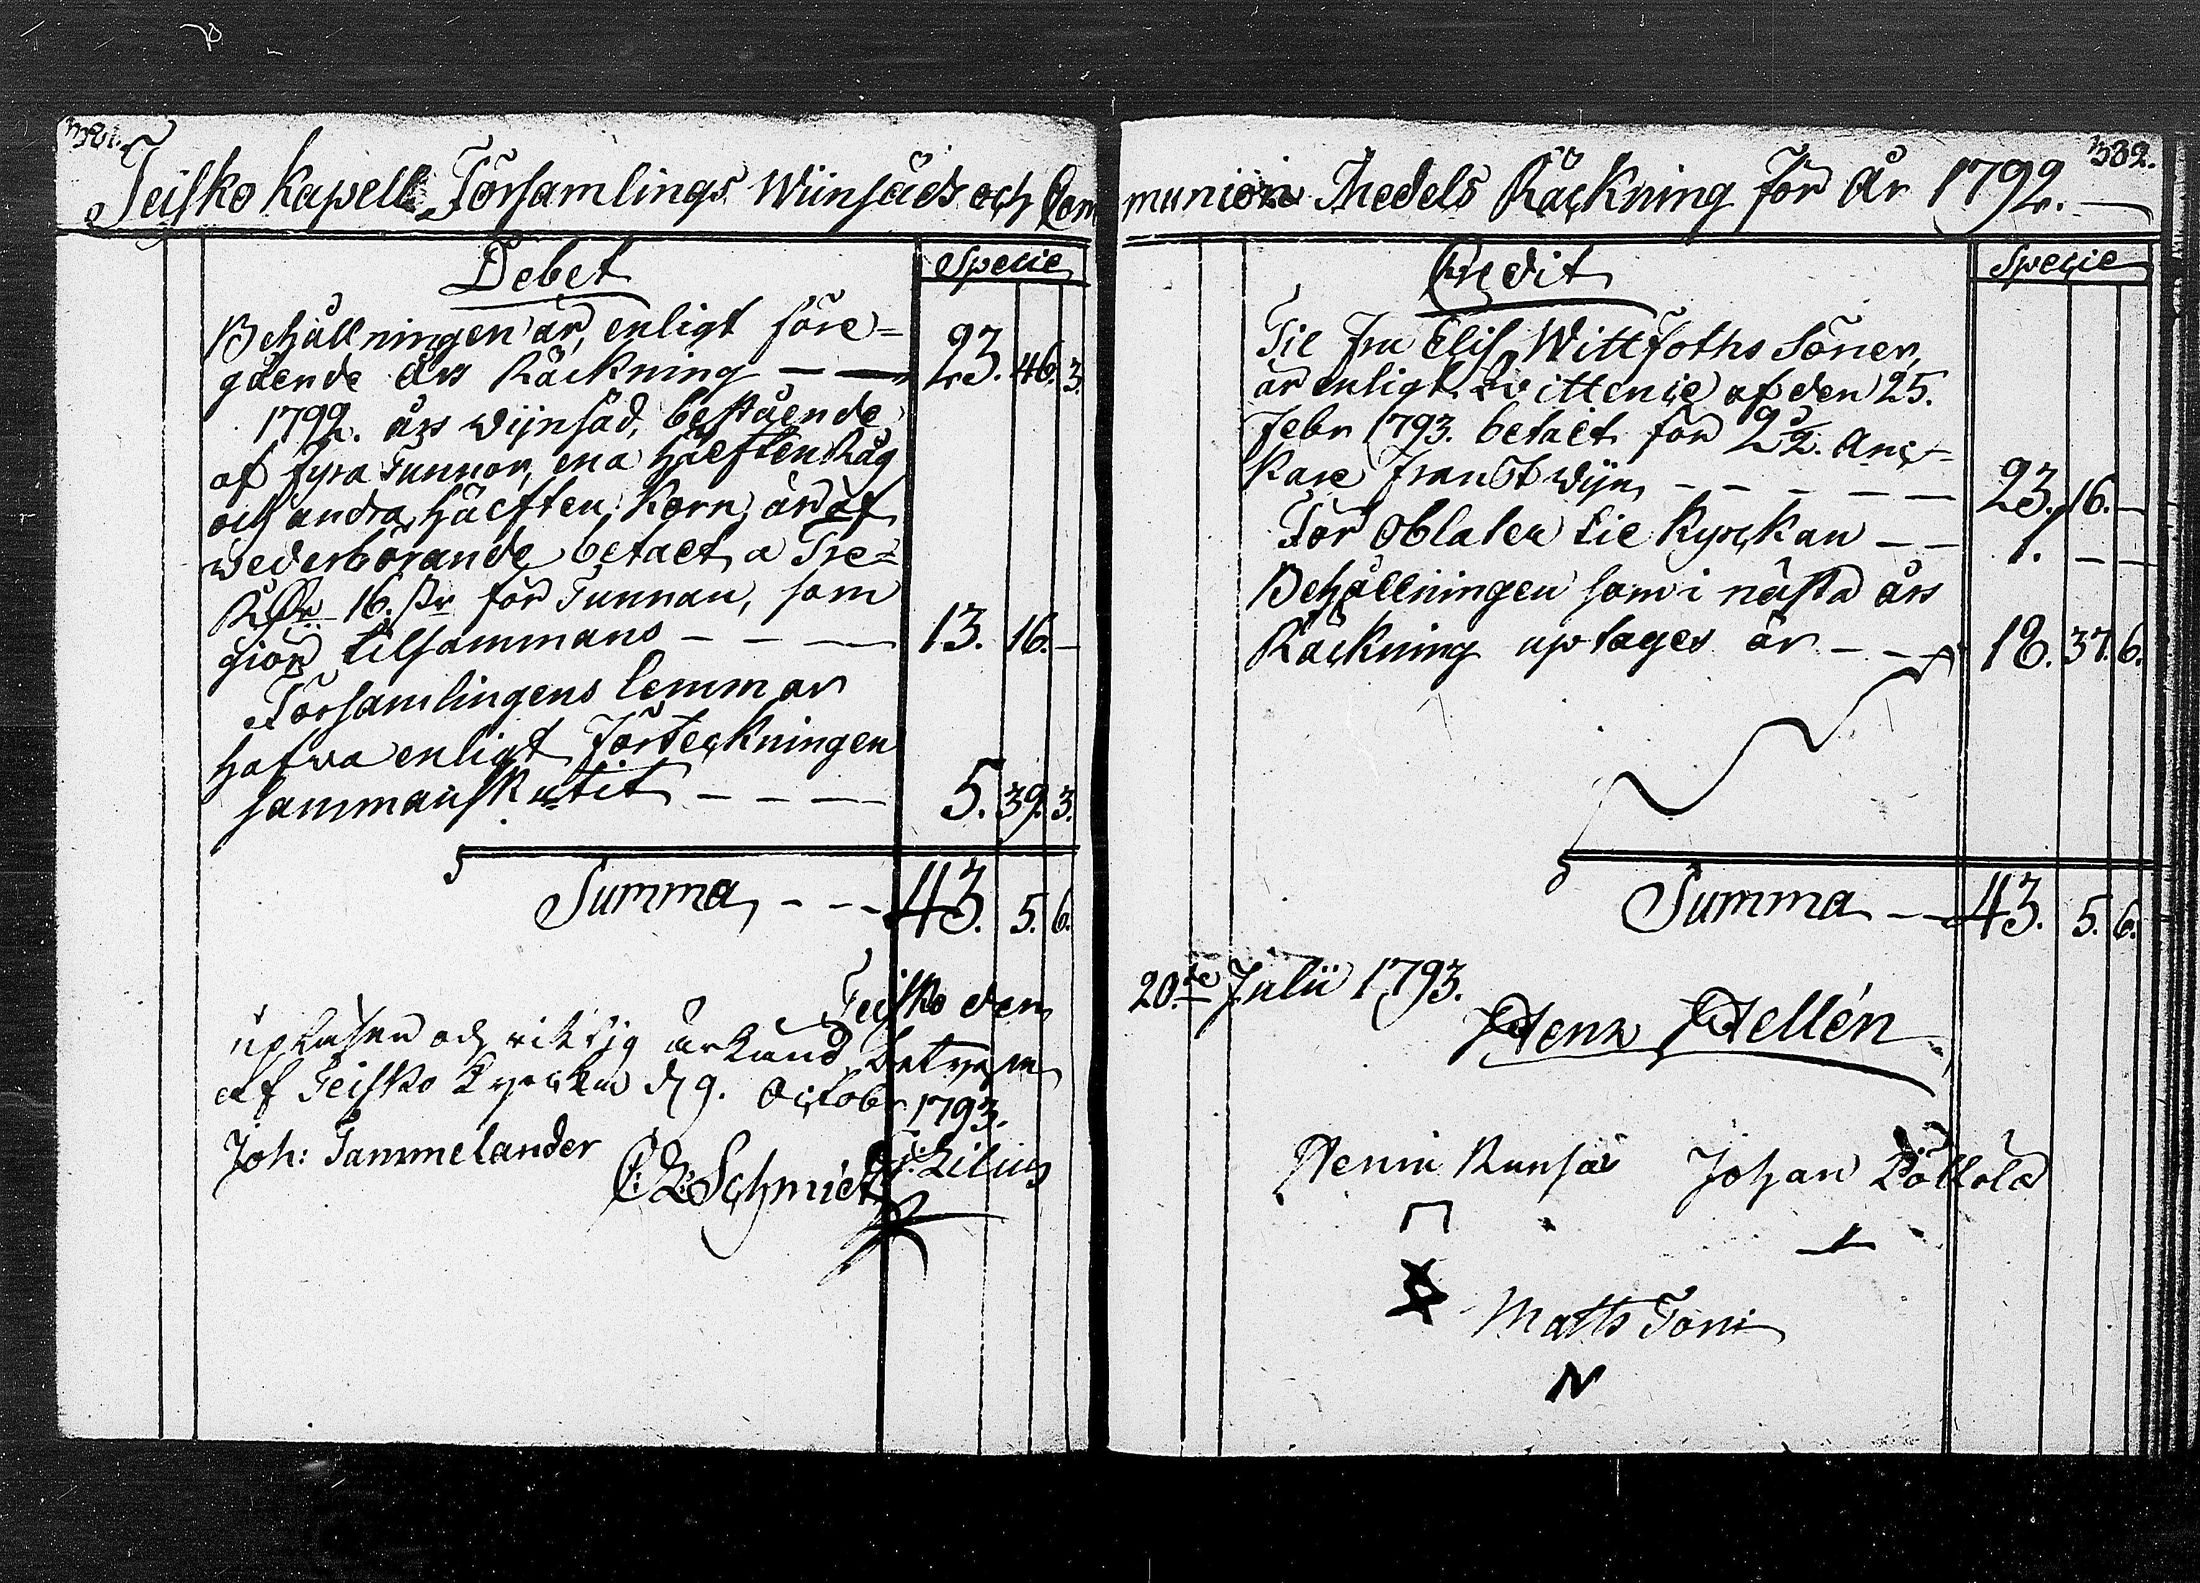 381.
Teisko Kapell Församlings Wiinsäds och Com
Debet
Specie
Behållningen är, enligt före=
gående års Räckning — — 23. 46. 3.
1792. års wijnsäd, bestående
af fyra Tunnor, ena Hälften Råg
och andra Hälften Korn, är af
wederbörande betalt a Tre
RDr 16. sk. för Tunnan, som
giör tilsammans — — — 13. 16. —
Församlingens lemmar
Hafwa enligt Förteckningen
sammanskutit — — — 5. 39. 3.
Summa, - - - 43. 5. 6.
Teisko den
upläsen och riktig ärkänd, betygam
af Teisko Kyrckia d 9. Octobr 1793.
Joh: Tammelander
C. Schmidt
Lilius
382.
munion Medels Räckning För År 1792. —
Credit
Specie
Til Fru Elis. Wittfoths Söner,
är enligt Qvittence af den 25.
Febr 1793. betalt för 2 1/2. Anc=
kare Franskt wijn — — — 23. 16. —
För Oblater til Kyrckan — — 1. — —
Behållningen som i nästa års
Räckning uptages är — — 18. 37. 6.
Summa — 43. 5. 6.
20.de Julii 1793.
Henr Hellén
Henric Johan
Matts Toni
N